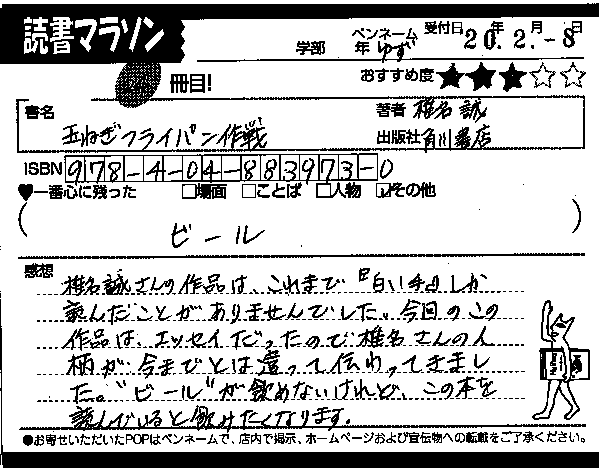 読書マラソン
学部 年 ペンネーム ゆず 受付日 20年 2.月 -8日
冊目!
おすすめ度 ★★★☆☆
書名 玉ねぎフライパン作戦
著者 椎名 誠
出版社 角川書店
ISBN 978-4-04-883973-0
♥一番心に残った □場面 □ことば □人物 ☑その他
( ビール )
感想 椎名誠さんの作品は、これまで『白い手』しか
読んだことがありませんでした。今回のこの
作品は、エッセイだったので椎名さんの人
柄が今までとは違って伝わってきまし
た。"ビール"が飲めないけれど、この本を
読んでいると飲みたくなります。
●お寄せいただいたPOPはペンネームで、店内で掲示、ホームページおよび宣伝物への転載をご了承ください。